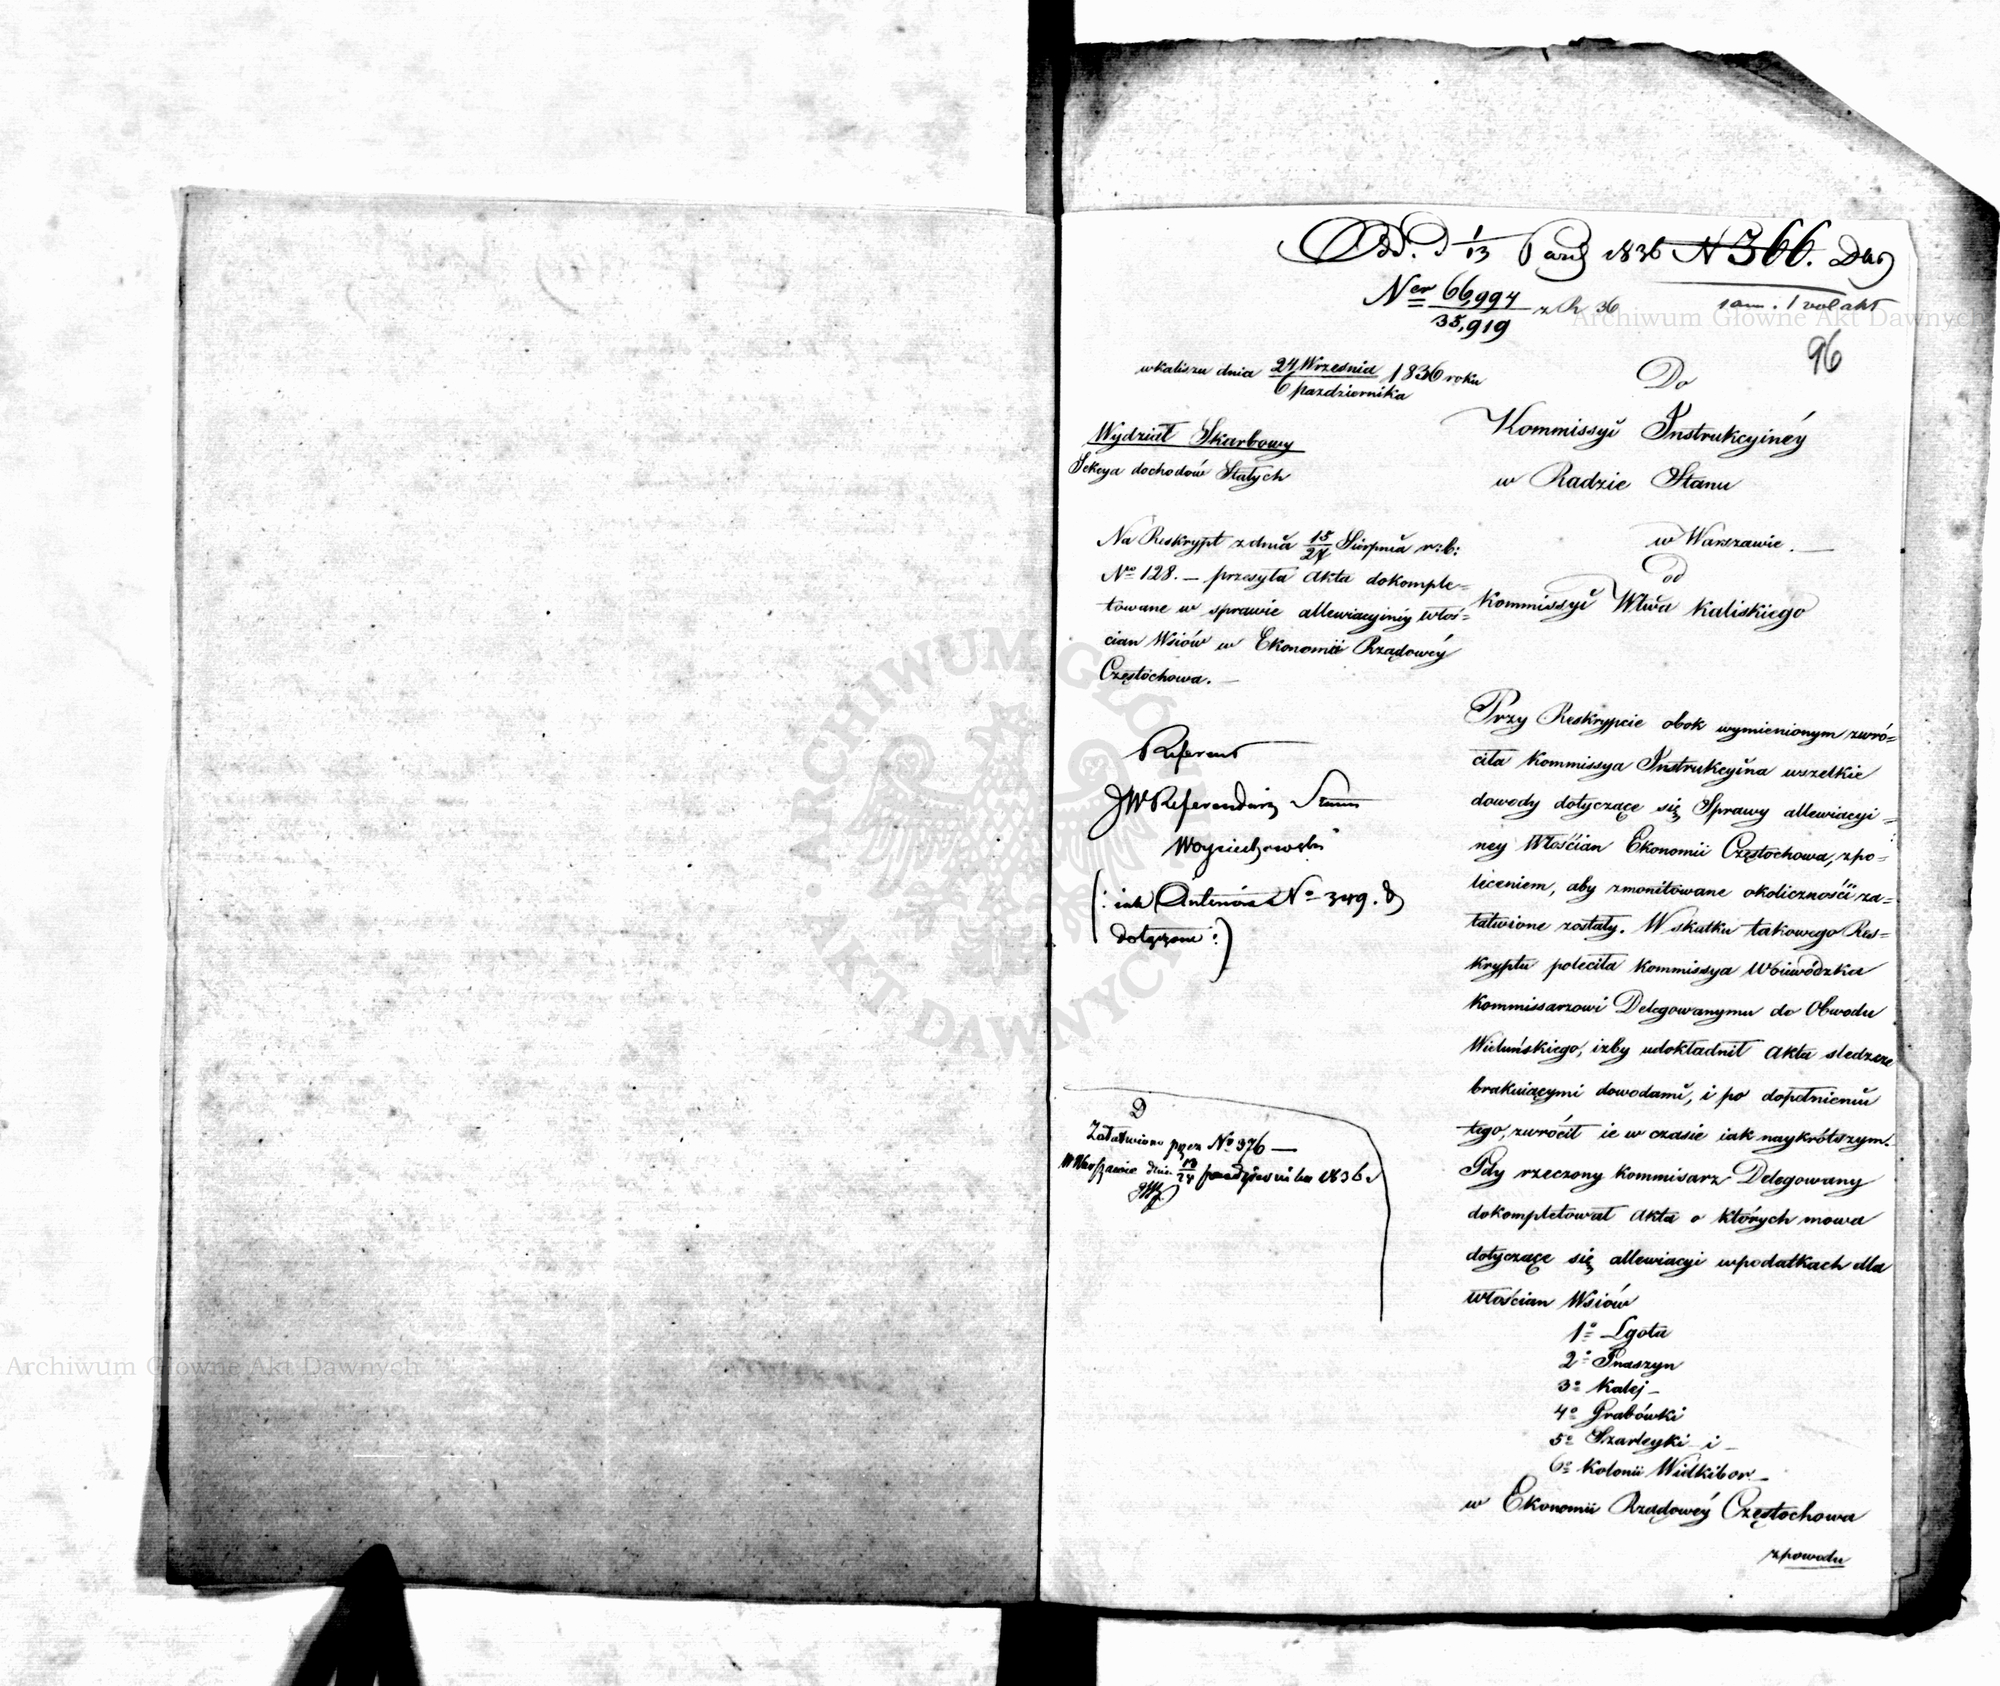 Od. d 1/13 Paźd 1836 N 366. Dać
Ner 66,994/35,919 z R 36
1 vol akt
96
w Kaliszu dnia 24 Września/6 października 1836 roku
Wydział Skarbowy
Sekcya dochodów Stałych
Na Reskrypt z dnia 15/27 Sierpnia r: b:
No 128. – przesyła Akta dokomple=
towane w sprawie allewiacyiney włoś=
cian Wsiów w Ekonomii Rządowey
Częstochowa. –
Referent
JW Referendarz Stanu
Woyciechowski
(: iak Anteriora No 349.
dołączone :)
Załatwione przez No 376 —
W Warszawie dnia 12/24 października 1836 r
Do
Kommissyi Instrukcyiney
w Radzie Stanu
w Warszawie. —
od
Kommissyi Wtwa Kaliskiego
Przy Reskrypcie obok wymienionym zwró=
ciła Kommissya Instrukcyina wszelkie
dowody dotyczące się Sprawy allewiacyi=
ney Włościan Ekonomii Częstochowa, z po=
leceniem, aby zmonitowane okoliczności za=
łatwione zostały. W skutku takowego Res=
kryptu poleciła Kommissya Woiewódzka
Kommissarzowi Delegowanymu do Obwodu
Wieluńskiego, iżby udokładnił Akta śledzcze
brakuiącymi dowodami, i po dopełnieniu
tego, zwrócił ie w czasie iak naykrótszym.
Gdy rzeczony Kommisarz Delegowany
dokompletował Akta o których mowa
dotyczące się allewiacyi w podatkach dla
Włościan Wsiów
1o Lgota
2o Gnaszyn
3o Kalej –
4o Grabówki
5o Szarleyki – i –
6o Kolonii Wielkibor –
w Ekonomii Rządowey Częstochowa
z powodu
Archiwum Główne Akt Dawnych
Archiwum Główne Akt Dawnych
ARCHIWUM GŁÓWNE AKT DAWNYCH